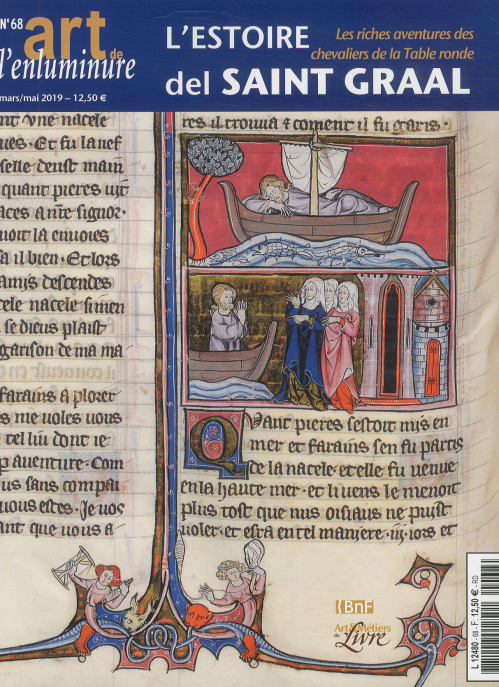 N°68
art de
l'enluminure
mars/mai 2019 – 12,50 €
L'ESTOIRE
del SAINT GRAAL
Les riches aventures des
chevaliers de la Table ronde
nt vne nacele
ues· Et fu la nef
selle deust main
quant pieres vit
aces a nr̄e signor·
noit la enuoies
a il bien· Et lors
amis descendes
cele nacele si men
se dieus plaist
garison de ma ma
farains a plorer
s me uoles uous
tel liu dont ie
p auenture· Com
us sans compai
uous estes· Je uos
ant que uous a
res il trouua ⁊ coment il fu garis·
QVant pieres sestoit mis en
mer et farains sen fu partis
de la nacele et elle fu uenue
en la haute mer· et li uens le menoit
plus tost que nus oisiaus ne puist
uoler· et esta en tel maniere· iiij· iors et
BnF
Art & Métiers
du Livre
L 12480 - 68 - F: 12,50 € - RD